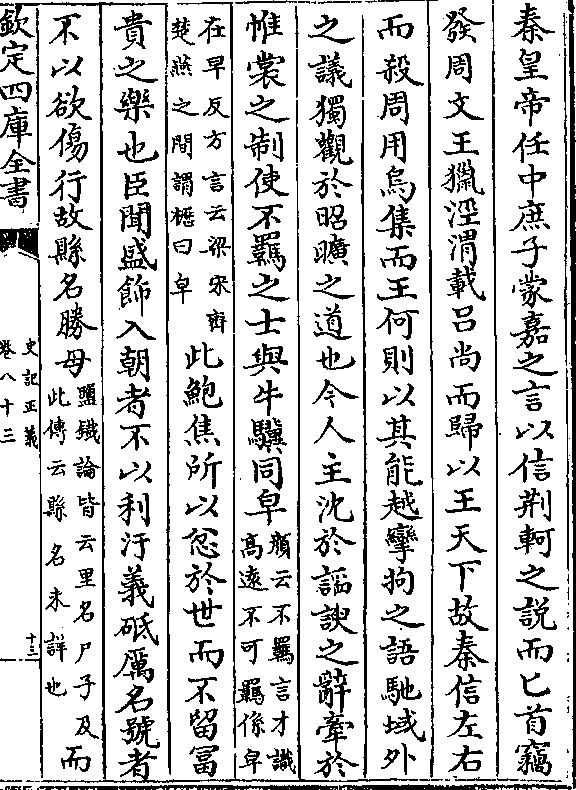 秦皇帝任中庶子蒙嘉之言以信荆軻之説而匕首竊
發周文王獵涇渭載吕尚而歸以王天下故秦信左右
而殺周用烏集而王何則以其能越攣拘之語馳域外
之議獨觀於昭曠之道也今人主沈於謟諛之辭牽於
帷裳之制使不羈之士與牛驥同皁
顔云不羈言才識
高遠不可羈係皁
在早反方言云梁宋齊
楚燕之間謂櫪曰皁
此鮑焦所以忿於世而不留冨
貴之樂也臣聞盛飾入朝者不以利汙義砥厲名號者
不以欲傷行故縣名勝母
鹽鐵論皆云里名尸子及
此傳云縣名未詳也
而
欽定四庫全書
史記正義
卷八十三
十三